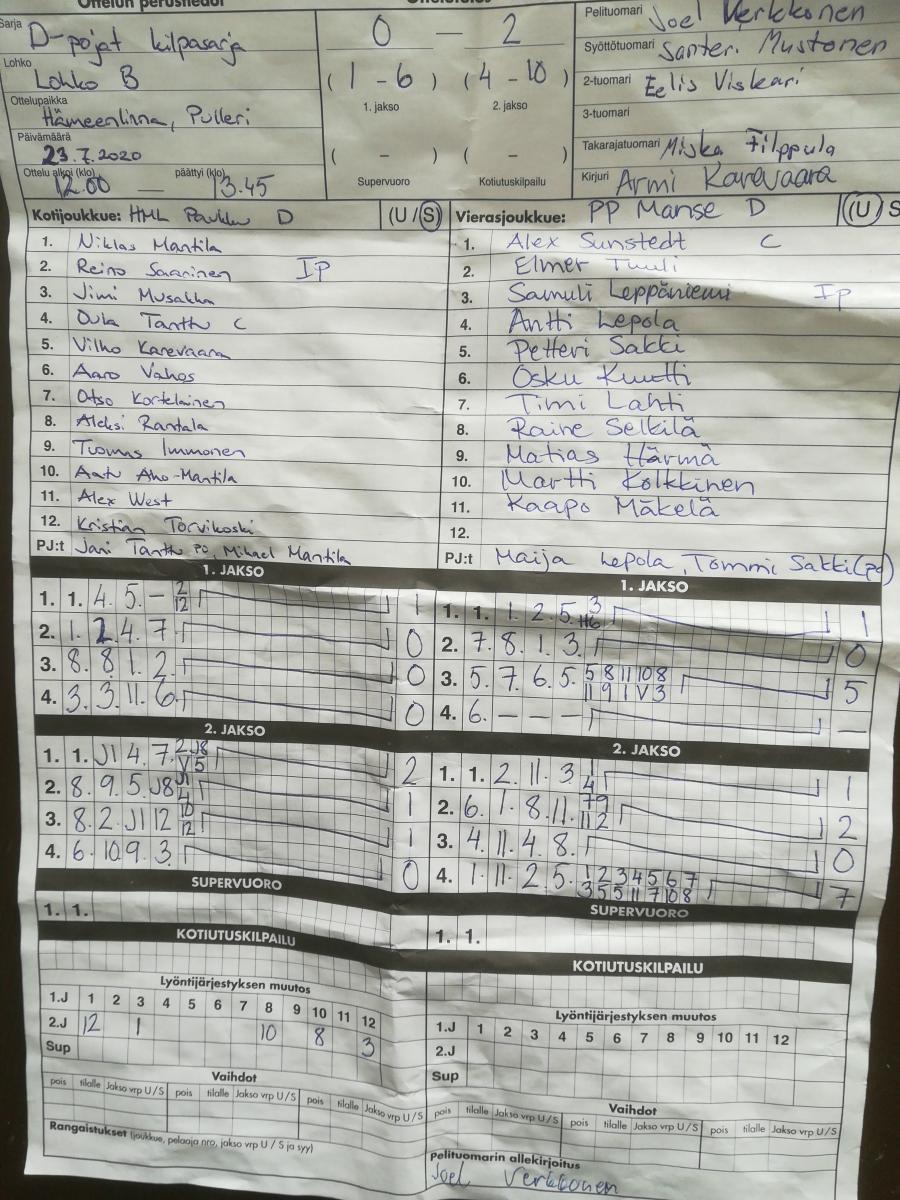 Ottelun perustiedot
Sarja D-pojat kilpasarja
Lohko Lohko B
Ottelupaikka Hämeenlinna, Pulleri
Päivämäärä 23.7.2020
Ottelu alkoi (klo) 12.00 — päättyi (klo) 13.45
0 — 2
(1 - 6) (4 - 10)
1. jakso 2. jakso
( - ) ( - )
Supervuoro Kotiutuskilpailu
Pelituomari Joel Verkkonen
Syöttötuomari Santeri Mustonen
2-tuomari Eelis Viskari
3-tuomari
Takarajatuomari Miska Filppula
Kirjuri Armi Karevaara
Kotijoukkue: HML Paukku D (U/S)
1. Niklas Mantila
2. Reino Saarinen IP
3. Jimi Musakka
4. Oula Tanttu C
5. Vilho Karevaara
6. Aaro Vahos
7. Otso Kortelainen
8. Aleksi Rantala
9. Tuomas Immonen
10. Aatu Aho-Mantila
11. Alex West
12. Kristian Torvikoski
PJ:t Jani Tanttu po, Mikael Mantila
Vierasjoukkue: PP Manse D (U) S
1. Alex Sunstedt C
2. Elmer Tuuli
3. Samuli Leppäniemi IP
4. Antti Lepola
5. Petteri Sakki
6. Osku Kuutti
7. Timi Lahti
8. Raine Selkilä
9. Matias Härmä
10. Martti Kolkkinen
11. Kaapo Mäkelä
12.
PJ:t Maija Lepola, Tommi Sakki (po)
1. JAKSO
1. 1. 4. 5. — 2 12 1
2. 1. 2. 4. 7. 0
3. 8. 8. 1. 2. 0
4. 3. 3. 11. 6. 0
2. JAKSO
1. 1. J1 4. 7. 2 J8 V 5 2
2. 8. 9. 5. J8 J1 4 1
3. 8. 2. J1 12 10 12 1
4. 6. 10. 9. 3. 0
SUPERVUORO
1. 1.
KOTIUTUSKILPAILU
1. JAKSO
1. 1. 1. 2. 5. 3 6 1
2. 7. 8. 1. 3. 0
3. 5. 7. 6. 5. 5 8 11 10 8 11 9 1 V 3 5
4. 6. — — — —
2. JAKSO
1. 1. 2. 11. 3 1 4 1
2. 6. 1. 8. 11. 7 9 11 2 2
3. 4. 11. 4. 8. 0
4. 1. 11. 2 5. 1 2 3 4 5 6 7 3 5 5 11 7 10 8 7
SUPERVUORO
1. 1.
KOTIUTUSKILPAILU
Lyöntijärjestyksen muutos
1.J 1 2 3 4 5 6 7 8 9 10 11 12
2.J 12 1 10 8 3
Sup
Vaihdot
pois tilalle Jakso vrp U/S pois tilalle Jakso vrp U/S pois tilalle Jakso vrp U/S
Rangaistukset (joukkue, pelaaja nro, jakso vrp U / S ja syy)
Lyöntijärjestyksen muutos
1.J 1 2 3 4 5 6 7 8 9 10 11 12
2.J
Sup
Vaihdot
pois tilalle Jakso vrp U/S pois tilalle Jakso vrp U/S pois tilalle Jakso vrp U/S
Pelituomarin allekirjoitus
Joel Verkkonen